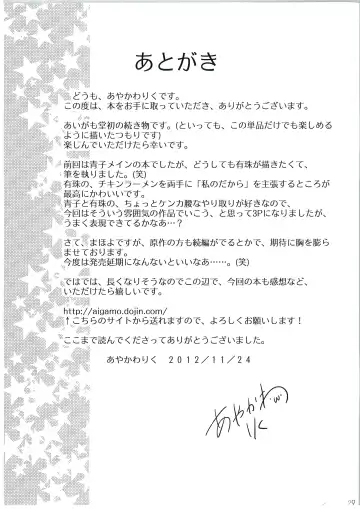 あとがき
どうも、あやかわりくです。
この度は、本をお手に取っていただき、ありがとうございます。
あいがも堂初の続き物です。(といっても、この単品だけでも楽しめる
ように描いたつもりです)
楽しんでいただけたら幸いです。
前回は青子メインの本でしたが、どうしても有珠が描きたくて、
筆を執りました。(笑)
有珠の、チキンラーメンを両手に「私のだから」を主張するところが
最高にかわいいです。
青子と有珠の、ちょっとケンカ腰なやり取りが好きなので、
今回はそういう雰囲気の作品でいこう、と思って3Pになりましたが、
うまく表現できてるかなあ…?
さて、まほよですが、原作の方も続編がでるとかで、期待に胸を膨ら
ませております。
今度は発売延期になんないといいなあ……。(笑)
ではでは、長くなりそうなのでこの辺で、今回の本も感想など、
いただけたら嬉しいです。
http://aigamo.dojin.com/
↑こちらのサイトから送れますので、よろしくお願いします!
ここまで読んでくださってありがとうございました。
あやかわりく 2012/11/24
あやかわ
りく
29